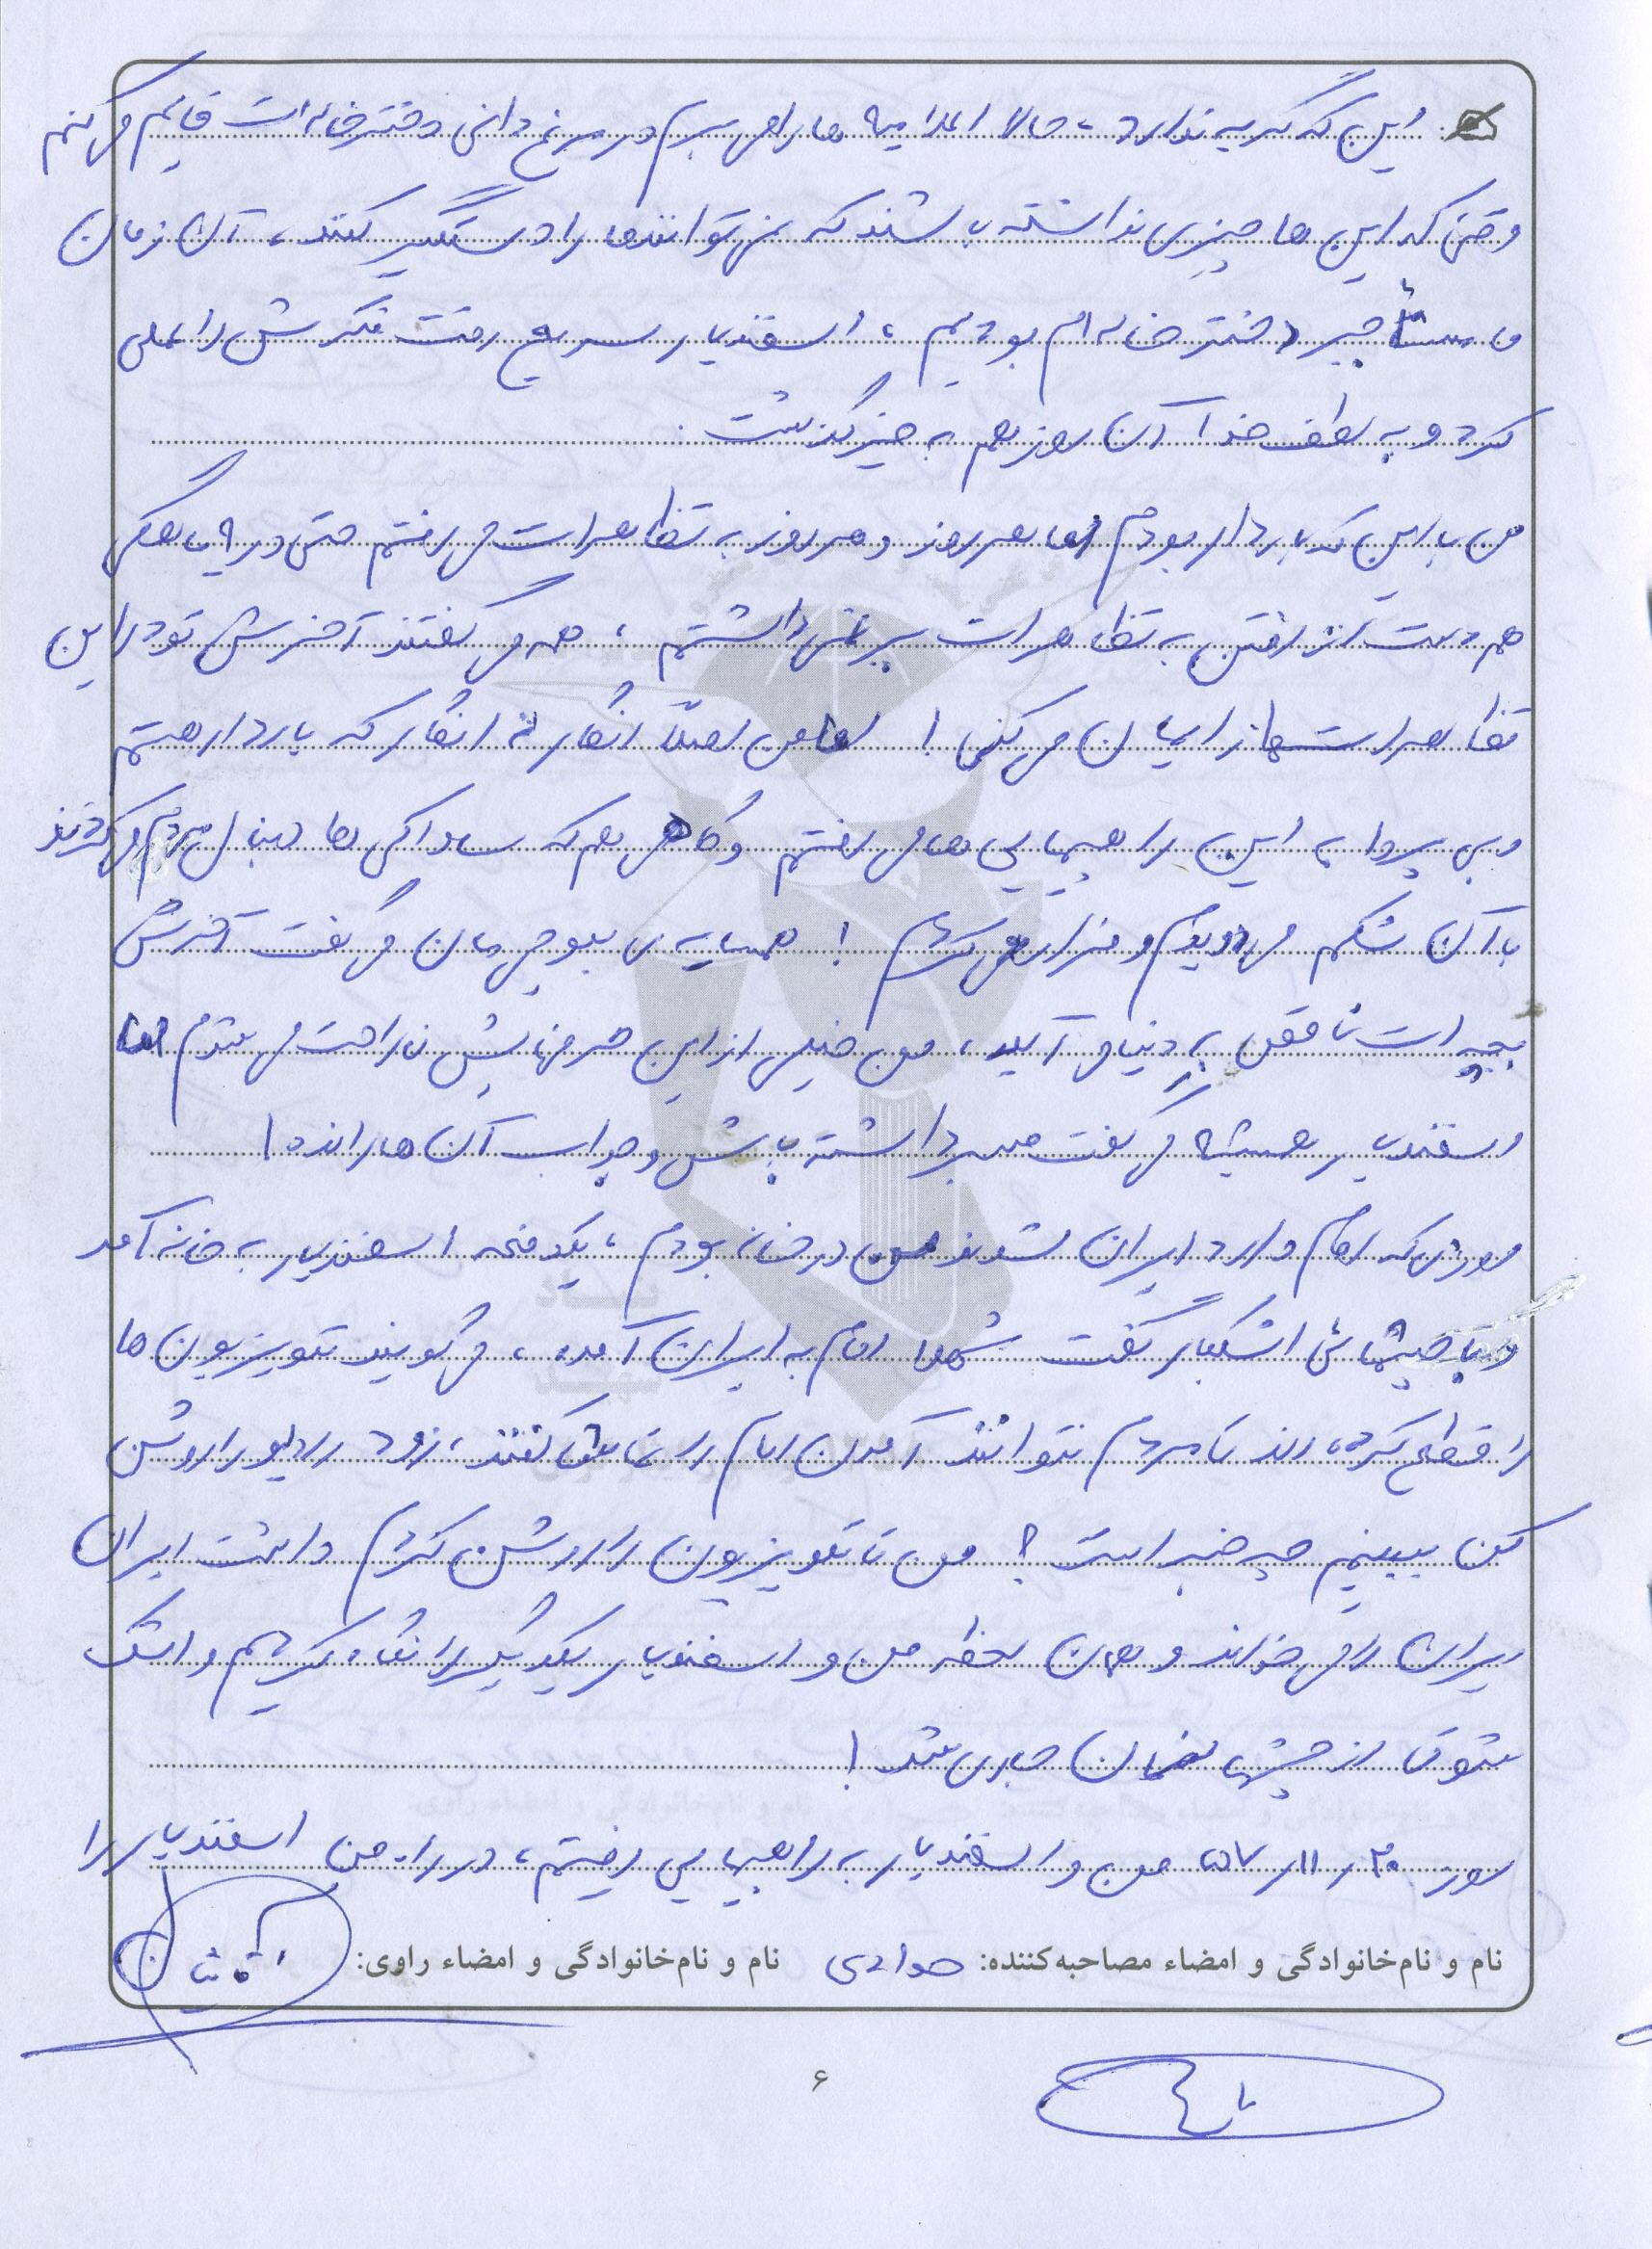 این که گریه ندارد، حالا اعلامیه ها را می برم در مرغ دانی دختر خاله ات قایم می کنم
وقتی که این ها چیزی نداشته باشند که نمی توانند ما را دستگیر کنند، آن زمان
ما مستأجر دختر خاله ام بودیم، اسفندیار سریع رفت فکرش را عملی
کرد و به لطف خدا آن روز هم به خیر گذشت.
من با این که باردار بودم اما هر روز و هر روز به تظاهرات می رفتم حتی در ۹ ماهگی
هم دست از رفتن به تظاهرات بر نمی داشتم، همه می گفتند آخرش تو در این
تظاهرات ها زایمان می کنی! اما من اصلاً انگار نه انگار که باردار هستم
و بی پروا به این راهپیمایی ها می رفتم و گاهی هم که ساواکی ها دنبال مردم می کردند
با آن شکم می دویدم و فرار می کردم! همسایه ی بلوچی مان می گفت آخرش
بچه ات ناقص به دنیا می آید، من خیلی از این حرفهایش ناراحت می شدم اما
اسفندیار همیشه می گفت صبر داشته باش و جواب آن ها را نده!
روزی که امام وارد ایران شدند من در خانه بودم، یکدفعه اسفندیار به خانه آمد
و با چشمانی اشکبار گفت شهلا امام به ایران آمده، می گویند تلویزیون ها
را قطع کرده اند تا مردم نتوانند آمدن امام را تماشا کنند، زود رادیو را روشن
کن ببینیم چه خبر است؟ من تا تلویزیون را روشن کردم داشت ایران
ایران را می خواند و همان لحظه من و اسفندیار یکدیگر را نگاه کردیم و اشک
شوق از چشمانمان جاری شد!
روز ۳۰ ر ۱۱ ر ۵۷ من و اسفندیار به راهپیمایی رفتیم، در راه من اسفندیار را
نام و نام‌خانوادگی و امضاء مصاحبه‌کننده: جوادی نام و نام‌خانوادگی و امضاء راوی:
۶